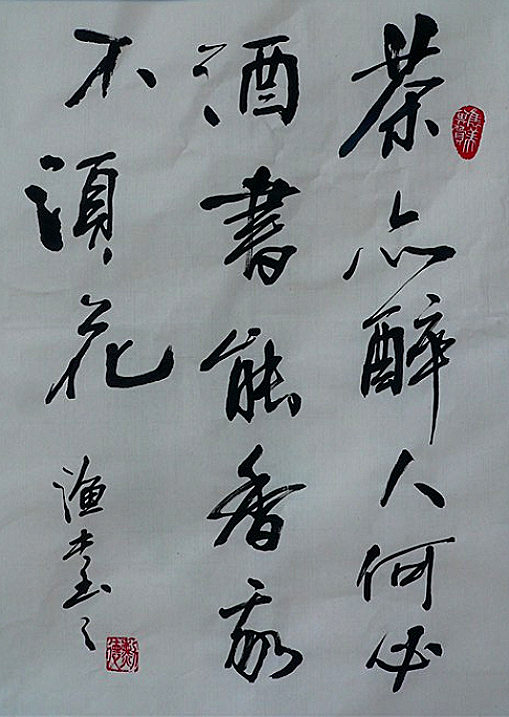 茶亦醉人何必
酒書能香我
不須花
渔